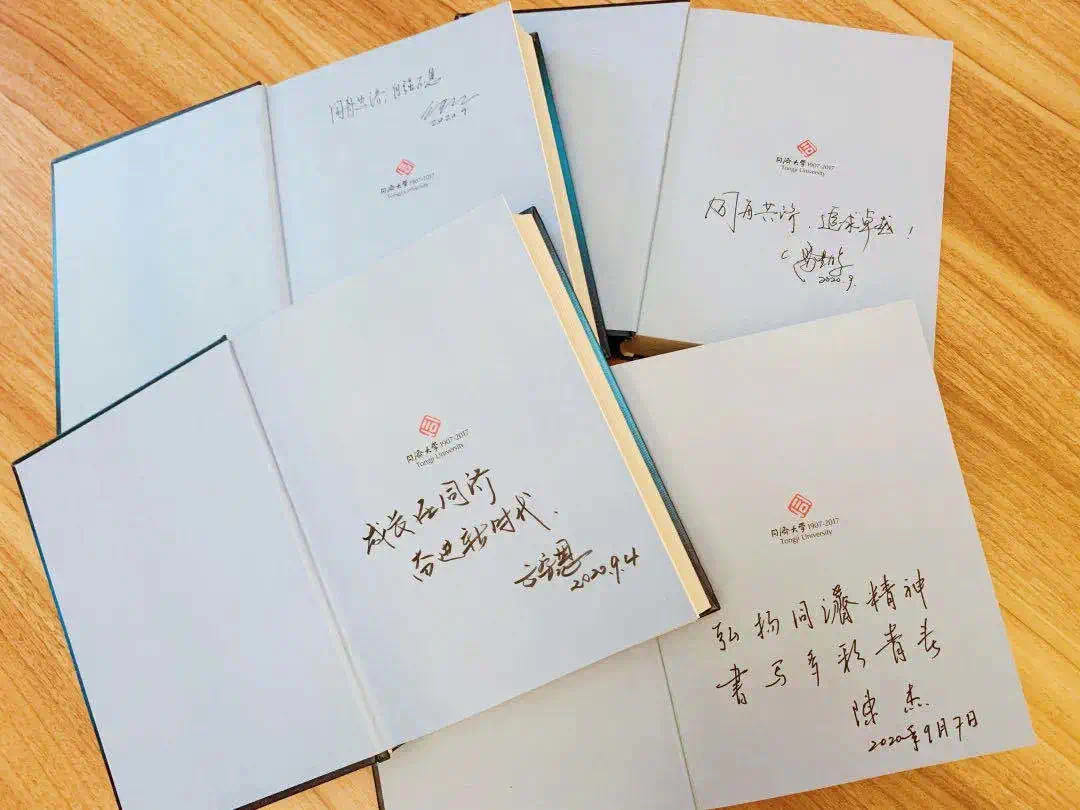 同舟共济,自强不息
2020.9
同济大学 1907-2017
Tongji University
同舟共济、追求卓越!
2020.9.
同济大学 1907-2017
Tongji University
同济大学 1907-2017
Tongji University
成长在同济
奋进新时代.
2020.9.4
同济大学 1907-2017
Tongji University
弘扬同濟精神
書写多彩青春
陳杰
2020年9月7日